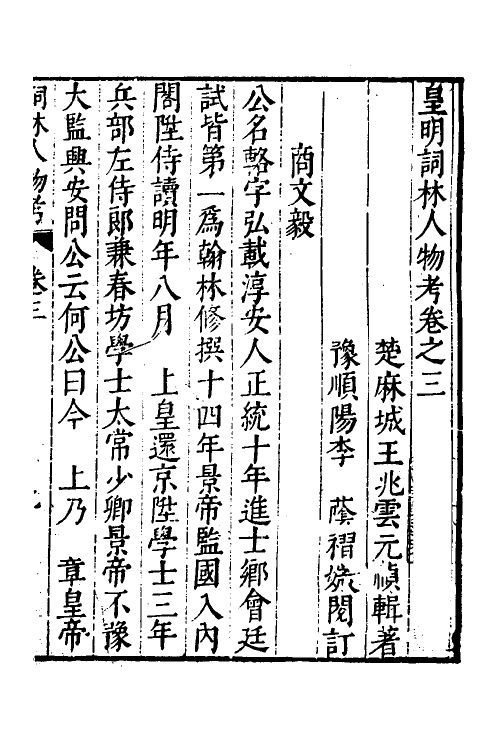 皇明詞林人物考卷之三
楚麻城王兆雲元禎輯著
豫順陽李 蔭襵 閱訂
商文毅
公名輅字弘載淳安人正統十年進士鄉會廷
試皆第一爲翰林修撰十四年景帝監國入內
閣陞侍讀明年八月 上皇還京陞學士三年
兵部左侍郎兼春坊學士太常少卿景帝不豫
大監興安問公云何公曰今 上乃 章皇帝
詞林人物考 卷三